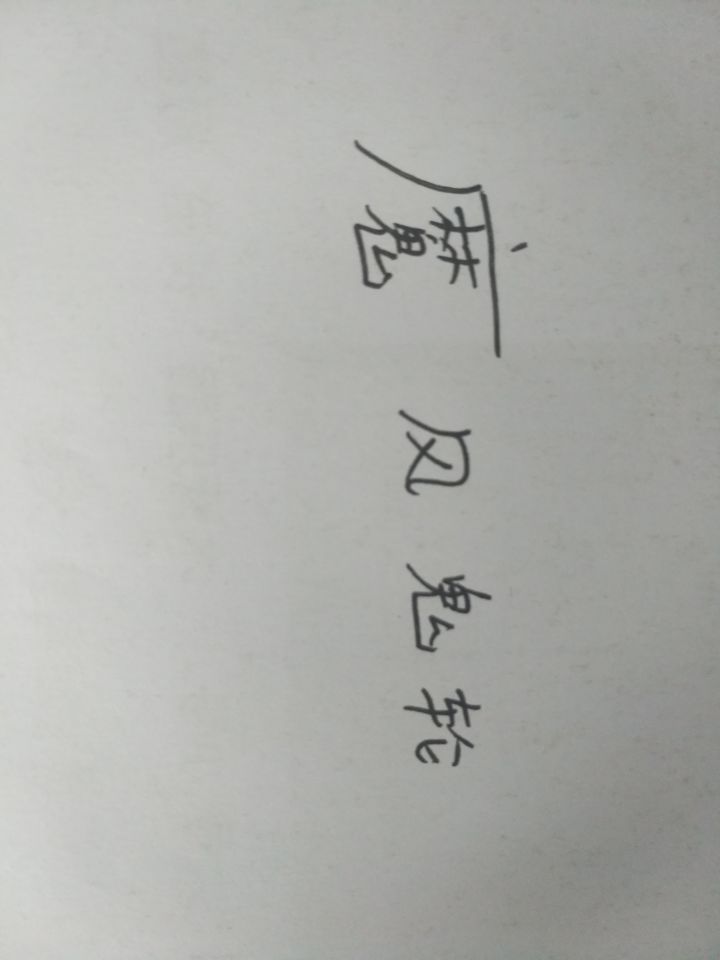 魔风鬼轮